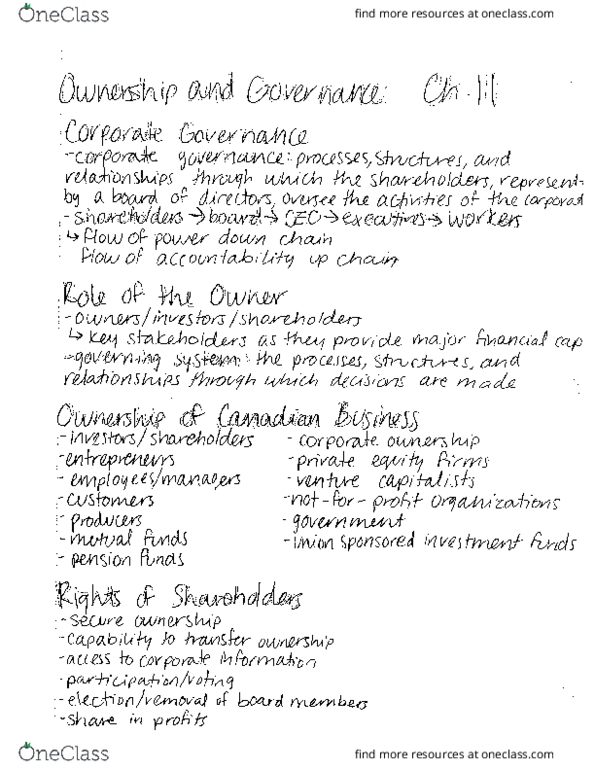 OneClass
find more resources at oneclass.com
Ownership and Governance: Ch. 11
Corporate Governance
- corporate governance: processes, structures, and
relationships through which the shareholders, represent-
by a board of directors, oversee the activities of the corporat
- shareholders → board → CEO → executives → workers
↳ flow of power down chain
flow of accountability up chain
Role of the Owner
- owners/investors/shareholders
↳ key stakeholders as they provide major financial cap
- governing system: the processes, structures, and
relationships through which decisions are made
Ownership of Canadian Business
- investors/shareholders
- entrepreneurs
- employees/managers
- customers
- producers
- mutual funds
- pension funds
- corporate ownership
- private equity firms
- venture capitalists
- not-for-profit organizations
- government
- union sponsored investment funds
Rights of Shareholders
- secure ownership
- capability to transfer ownership
- access to corporate information
- participation/voting
- election/removal of board members
- share in profits
OneClass
find more resources at oneclass.com